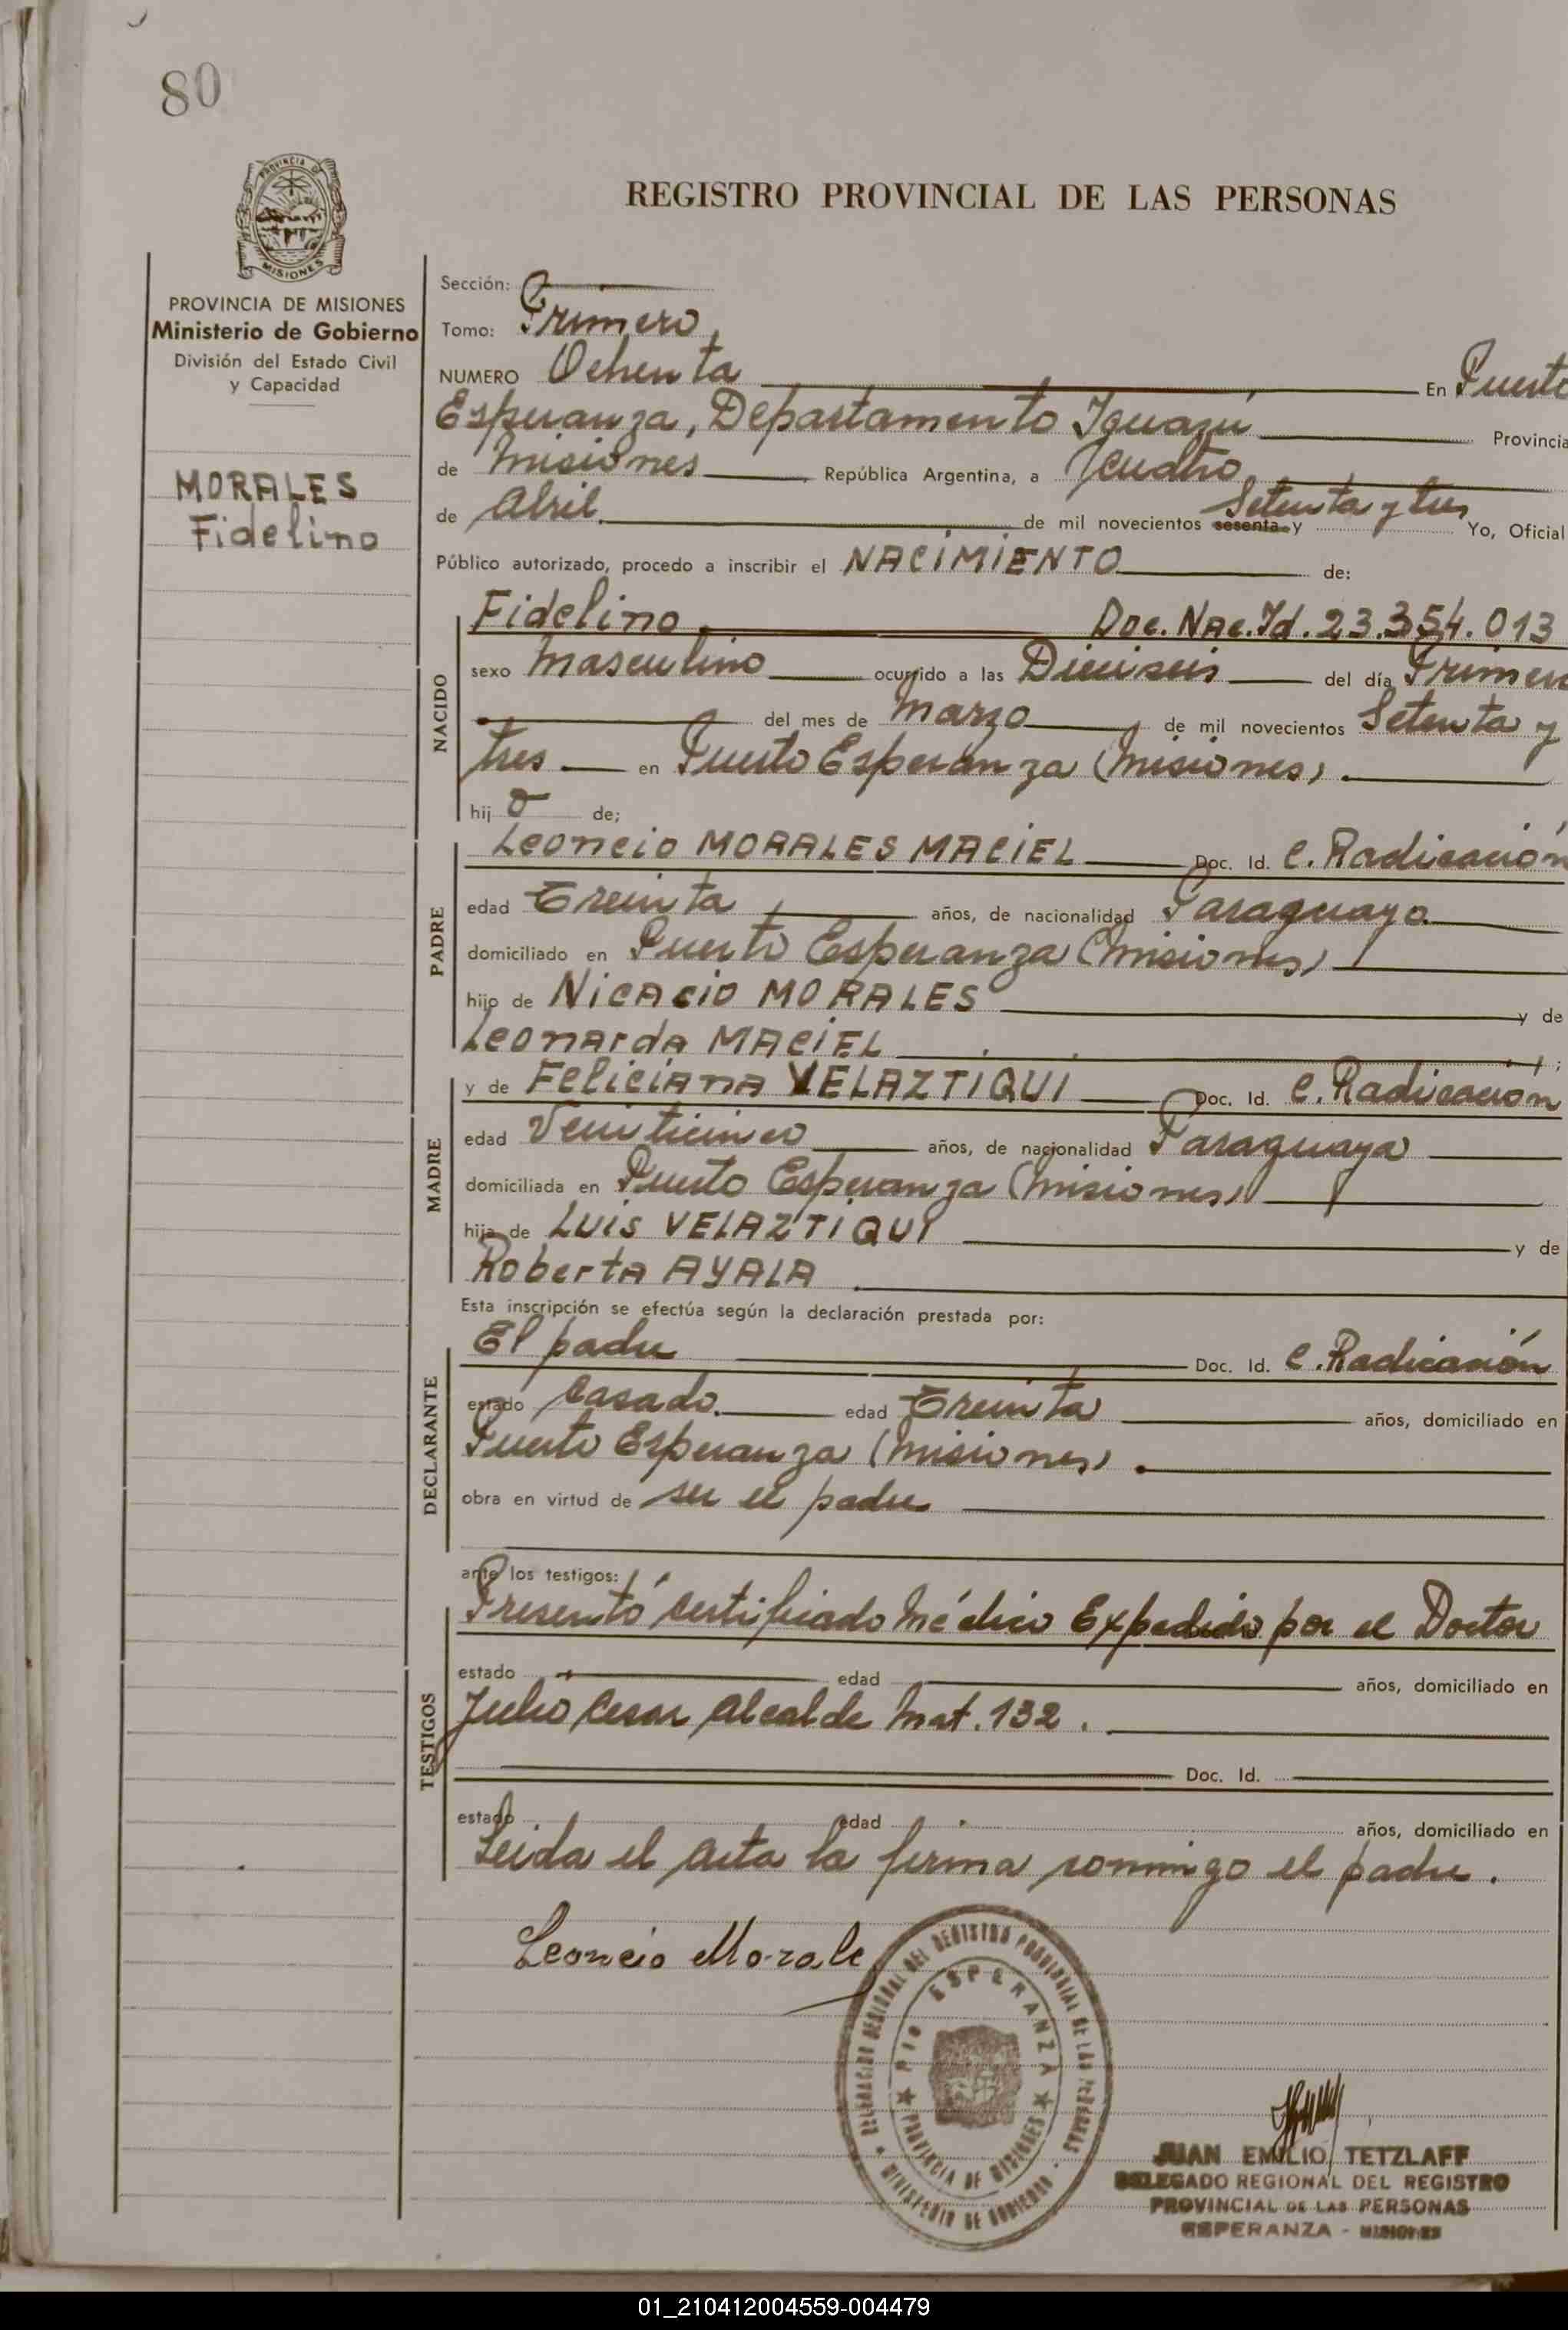 80
PROVINCIA DE
MISIONES
REGISTRO PROVINCIAL DE LAS PERSONAS
PROVINCIA DE MISIONES
Ministerio de Gobierno
División del Estado Civil
y Capacidad
MORALES
Fidelino
Sección:
Tomo: Primero
NUMERO Ochenta En Puerto
Esperanza, Departamento Iguazú Provincia
de Misiones República Argentina, a cuatro
de Abril de mil novecientos sesenta y Setenta y tres Yo, Oficial
Público autorizado, procedo a inscribir el NACIMIENTO de:
NACIDO
Fidelino Doc. Nac. Id. 23.354.013
sexo Masculino ocurrido a las Dieciseis del día Primero
del mes de Marzo de mil novecientos Setenta y
tres en Puerto Esperanza (Misiones).
hij o de;
PADRE
Leoncio MORALES MACIEL Doc. Id. C. Radicación
edad Treinta años, de nacionalidad Paraguaya
domiciliado en Puerto Esperanza (Misiones)
hijo de Nicacio MORALES y de
Leonarda MACIEL ;
MADRE
y de Feliciana VELAZTIQUI Doc. Id. C. Radicación
edad Veinticinco años, de nacionalidad Paraguaya
domiciliada en Puerto Esperanza (Misiones)
hija de Luis VELAZTIQUI y de
Roberta AYALA
Esta inscripción se efectúa según la declaración prestada por:
DECLARANTE
El padre Doc. Id. C. Radicación
estado Casado edad Treinta años, domiciliado en
Puerto Esperanza (Misiones)
obra en virtud de ser el padre
ante los testigos:
TESTIGOS
Presentó Certificado Médico Expedido por el Doctor
estado edad años, domiciliado en
Julio Cesar Alcalde Mat. 132.
Doc. Id.
estado edad años, domiciliado en
Leida el acta la firma conmigo el padre.
Leoncio Morale
DELEGACION REGIONAL DEL REGISTRO PROVINCIAL DE LAS PERSONAS
MINISTERIO DE GOBIERNO
ESPERANZA
PROVINCIA DE MISIONES
JUAN EMILIO TETZLAFF
DELEGADO REGIONAL DEL REGISTRO
PROVINCIAL DE LAS PERSONAS
ESPERANZA - MISIONES
01_210412004559-004479